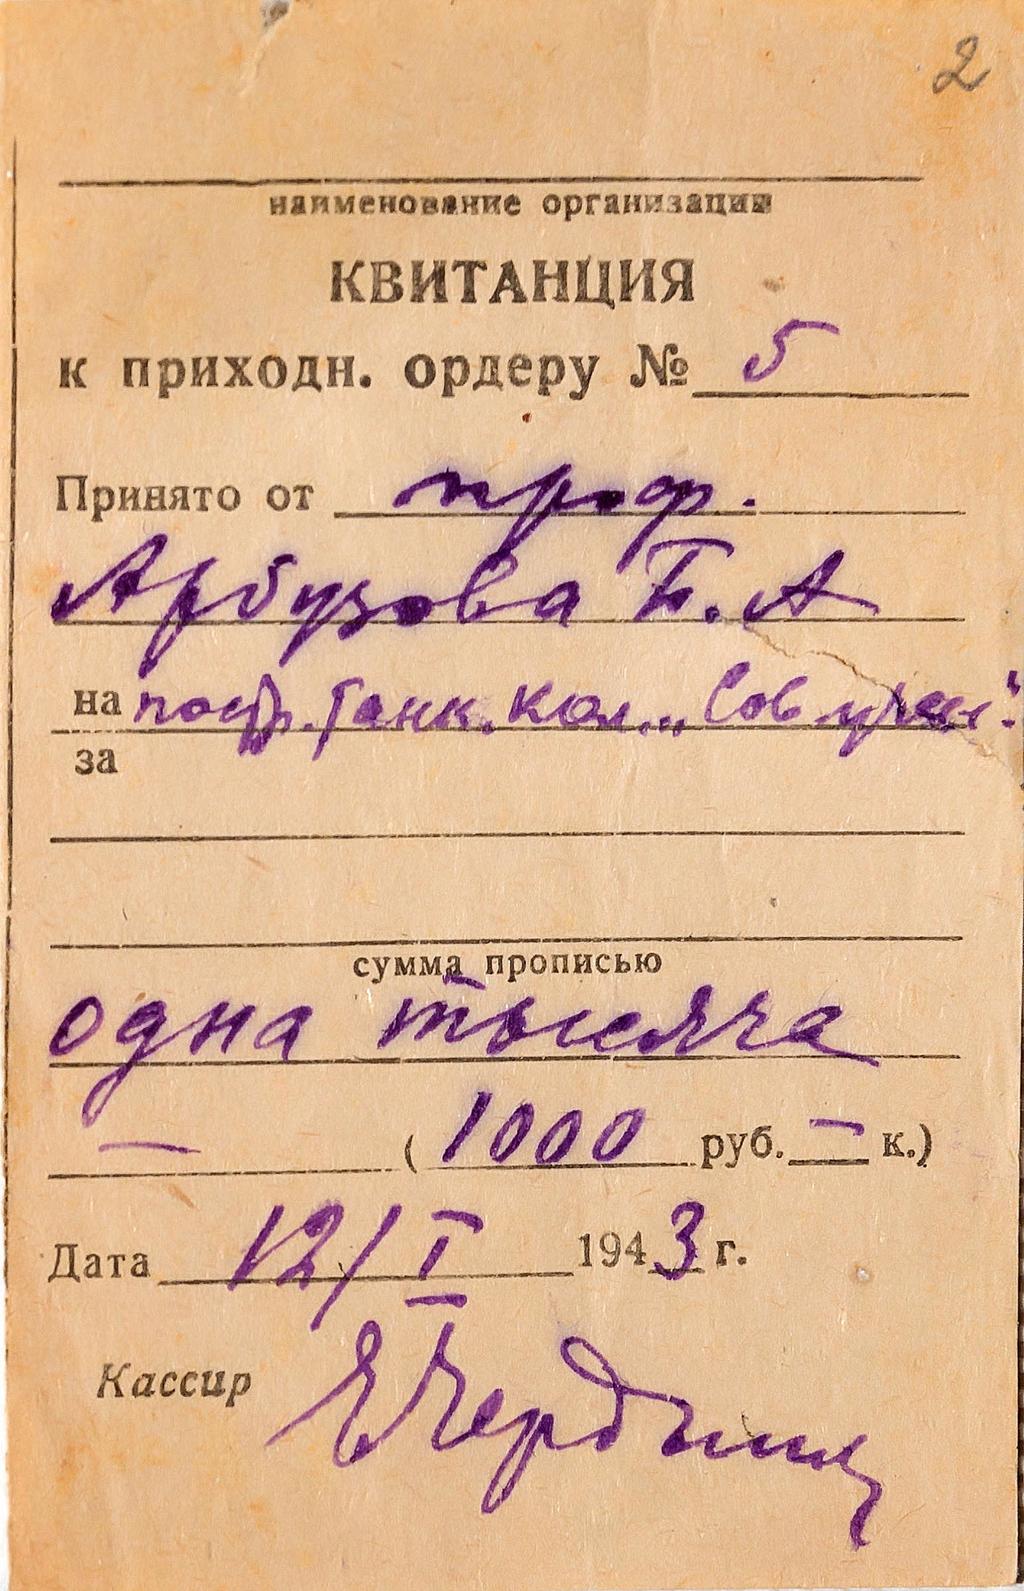 2
наименование организации
КВИТАНЦИЯ
к приходн. ордеру № 5
Принято от проф.
Арбузова Б. А
на постр. танк. кол. „Сов
за
сумма прописью
одна тысяча
— (1000 руб. — к.)
Дата 12/I 1943 г.
Кассир